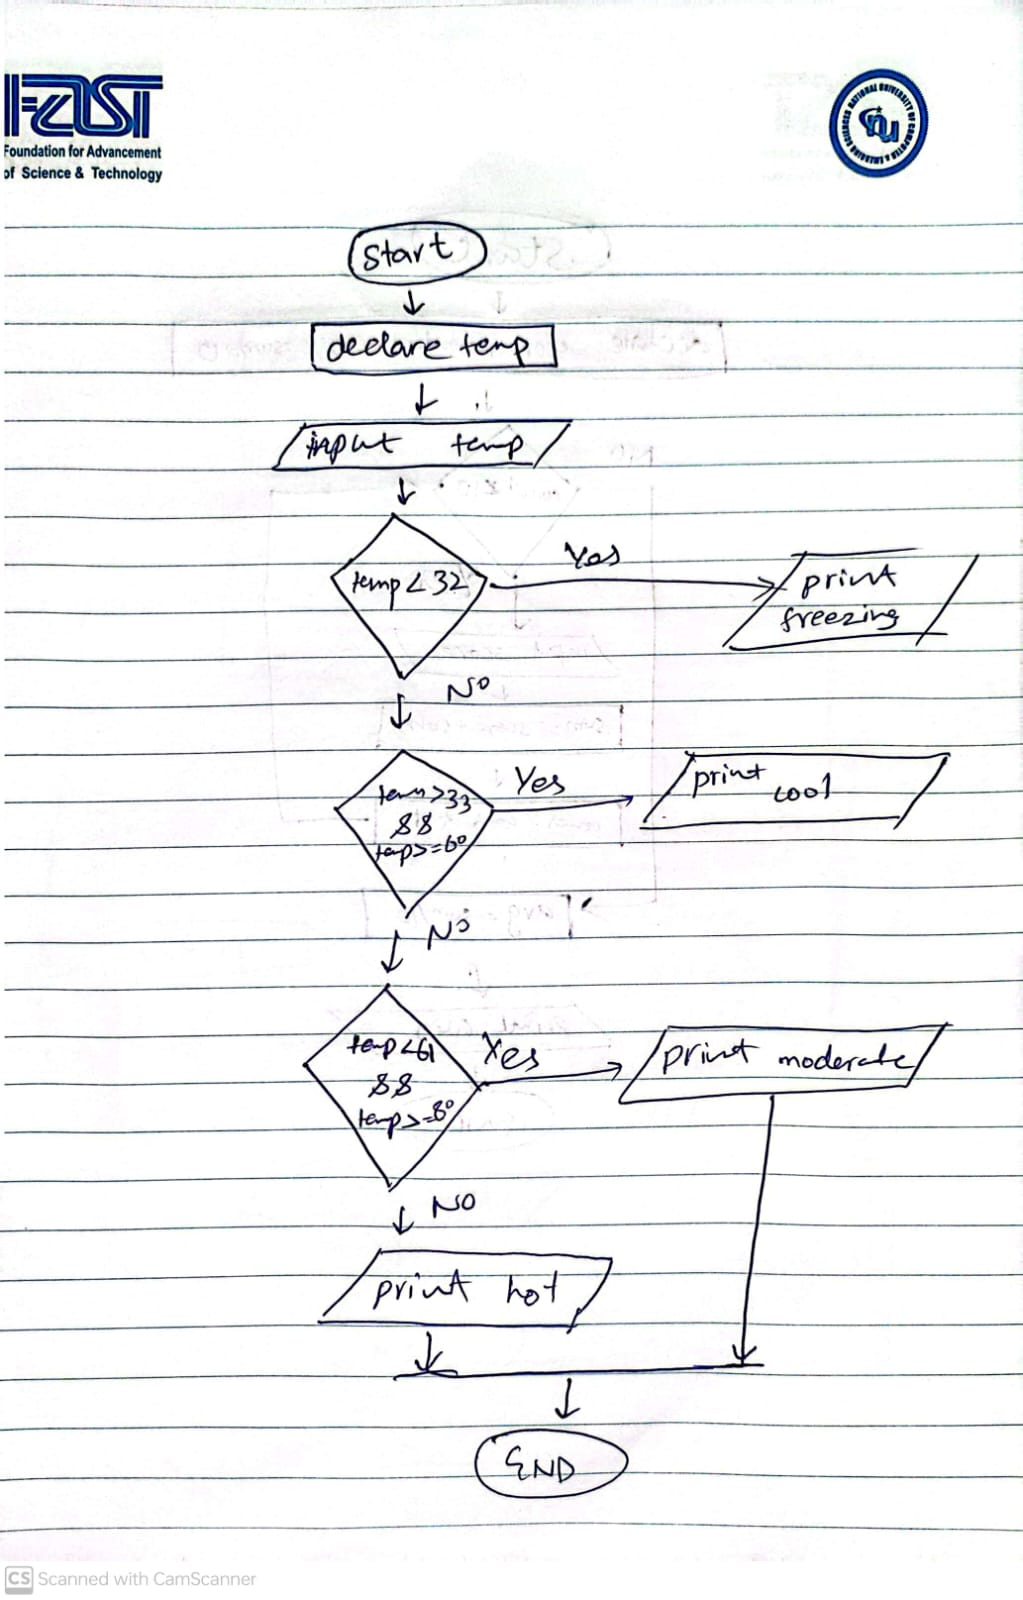 FAST
Foundation for Advancement
of Science & Technology
NATIONAL UNIVERSITY OF COMPUTER & EMERGING SCIENCES
nu
Start
declare temp
input temp
temp < 32
Yes
print
freezing
NO
tem > 33
&&
temp >= 60
Yes
print
cool
NO
temp < 61
&&
temp >= 80
Yes
print moderate
NO
print hot
END
CS Scanned with CamScanner